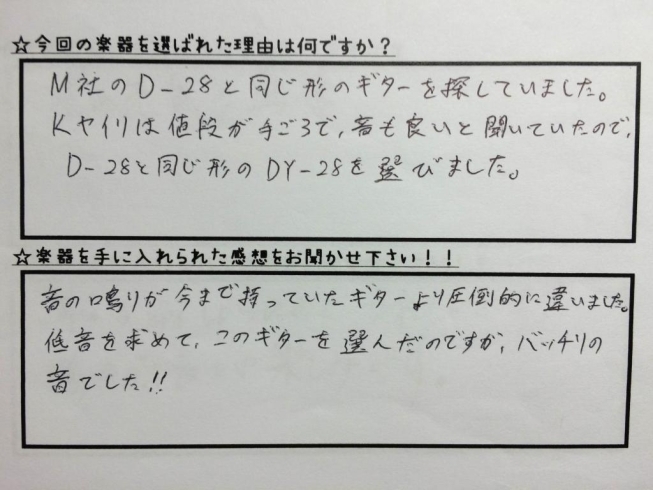 ☆今回の楽器を選ばれた理由は何ですか？
M社のD-28と同じ形のギターを探していました。
Kヤイリは値段が手ごろで、音も良いと聞いていたので、
D-28と同じ形のDY-28を選びました。
☆楽器を手に入れられた感想をお聞かせ下さい！！
音の鳴りが今まで持っていたギターより圧倒的に違いました。
低音を求めて、このギターを選んだのですが、バッチリの
音でした!!